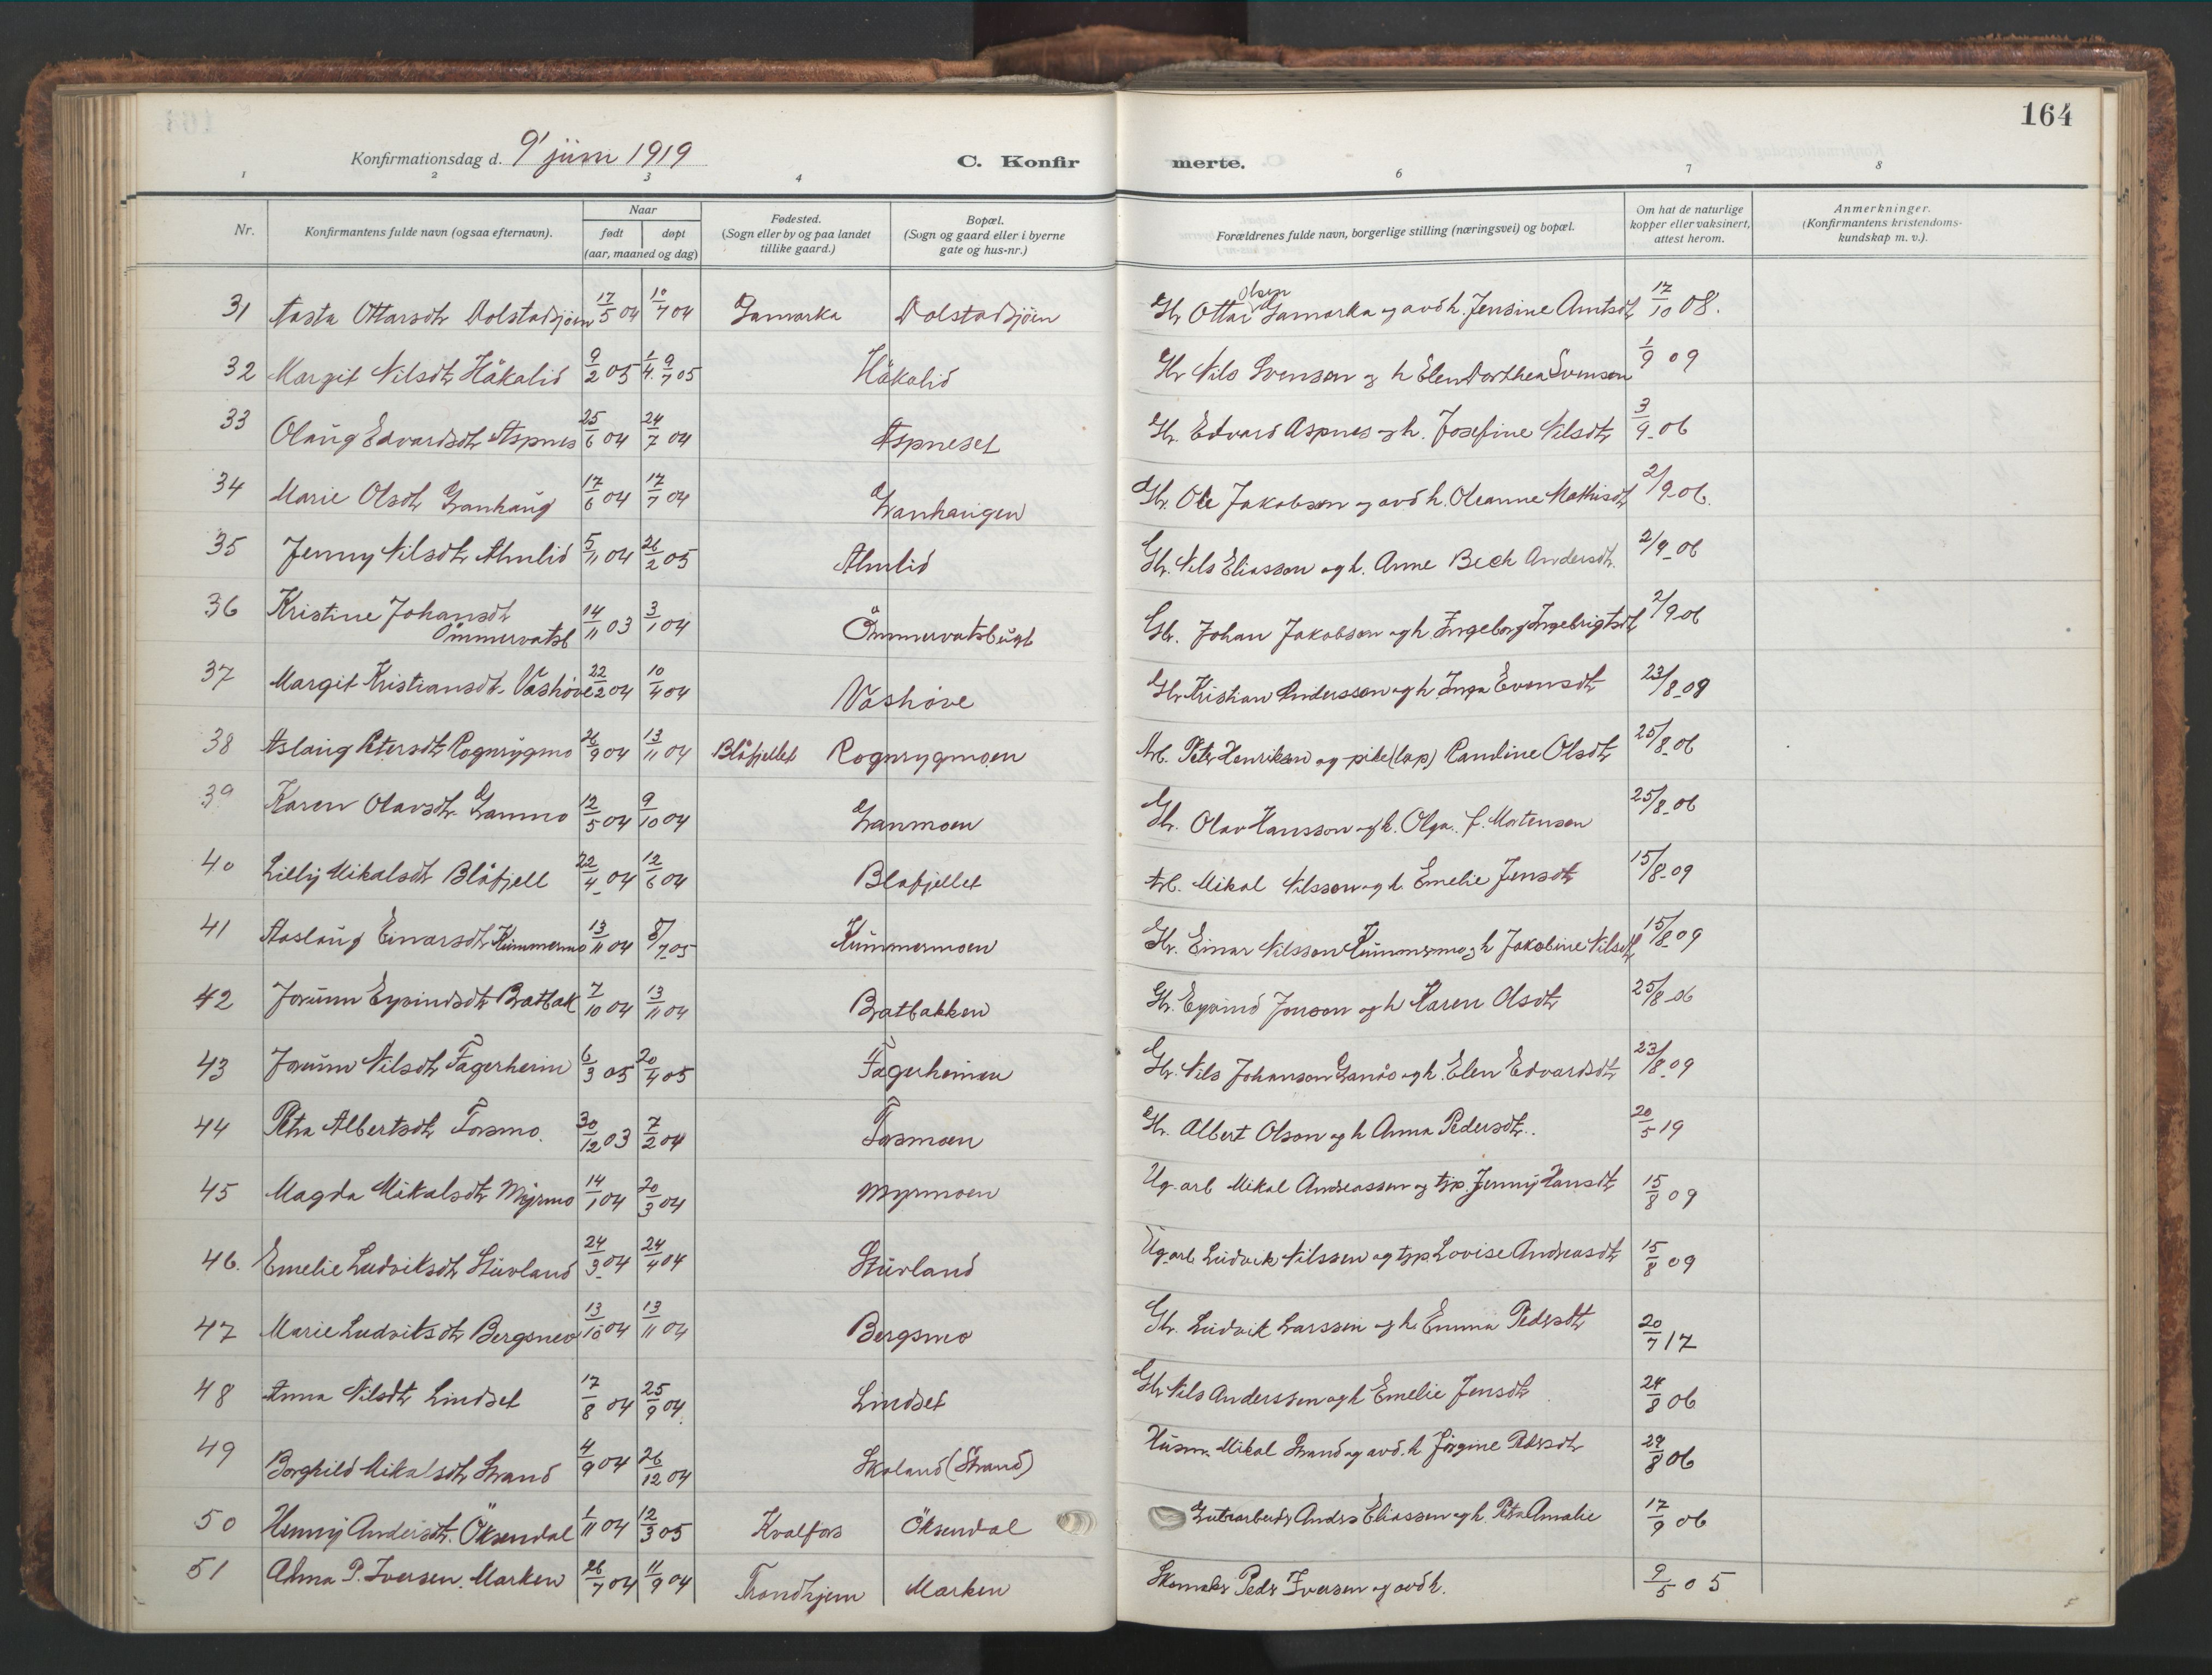 164
Konfirmationsdag d. 9' juni 1919
C. Konfir merte.
1 2 3 4 6 7 8
Nr. Konfirmantens fulde navn (ogsaa efternavn). Naar født døpt (aar, maaned og dag) Fødested. (Sogn eller by og paa landet tillike gaard.) Bopæl. (Sogn og gaard eller i byerne gate og hus-nr.) Forældrenes fulde navn, borgerlige stilling (næringsvei) og bopæl. Om hat de naturlige kopper eller vaksinert, attest herom. Anmerkninger. (Konfirmantens kristendoms-kundskap m. v.).
31 Aasta Ottarsdtr Dolstadsjöen 17/5 04 10/7 04 Granmarka Dolstadsjöen Gbr Ottar Olsen og avd h. Jensine Amtsdtr 17/10 08.
32 Margit Nilsdtr Håkalid 9/2 05 9/7 05 Håkalid Gbr Nils Svensen og h Elen Dorthea Svensen 1/9 09
33 Olaug Edvardsdtr Aspnes 25/6 04 24/7 04 Aspneset Gbr. Edvard Aspnes og h. Josefine Nilsdtr 3/9 06
34 Marie Olsdtr Granhaug 17/6 04 17/7 04 Granhaugen Gbr. Ole Jakobsen og avd h. Oleanne Mathisdtr 2/9 06.
35 Jenny Nilsdtr Almlid 5/11 04 26/2 05 Almlid Gbr. Nils Eliassen og h. Anne Bech Andersdtr. 2/9 06
36 Kristine Johansdtr Ömmervatsb 14/11 03 3/1 04 Ömmervatsbugt Gbr. Johan Jakobsen og h. Ingeborg Ingebrigtsdtr 2/9 06
37 Margit Kristiansdtr. Vashöve 22/2 04 10/4 04 Vashöve Gbr Kristian Anderssen og h. Inga Evensdtr 23/8 09
38 Aslaug Petersdtr Rognrygmo 26/9 04 13/11 04 Blåfjellet Rognrygmoen Arb. Peter Henriksen og pike (lap) Pauline Olsdtr 25/8 06
39 Karen Olavsdtr. Granmo 12/5 04 9/10 04 Granmoen Gbr. Olav Hansson og h. Olga f. Mortensen 25/8 06
40 Lilly Mikalsdtr Blåfjell 22/4 04 12/6 04 Blåfjellet Arb. Mikal Nilssen og h. Emelie Jensdtr 15/8 09
41 Aaslaug Einarsdtr Kummermo 13/11 04 8/7 05 Kummermoen Gbr. Einar Nilssen Kummermo og h Jakobine Nilsdtr 15/8 09
42 Jorunn Eyvindsdtr Bratbak 7/10 04 13/11 04 Bratbakken Gbr. Eyvind Jonson og h Karen Olsdtr 25/8 06
43 Jorunn Nilsdtr Fagerheim 6/3 05 20/4 05 Fagerheimen Gbr. Nils Johanson og h. Elen Edvardsdtr 23/8 09
44 Petra Albertsdtr Forsmo. 30/12 03 7/2 04 Forsmoen Gbr. Albert Olson og h Anna Pedersdtr. 20/5 19
45 Magda Mikalsdtr Myrmo 14/1 04 20/3 04 Myrmoen Ug arb Mikal Andreassen og tjp. Jenny Hansdtr 15/8 09
46. Emelie Ludviksdtr Stuvland 24/3 04 24/4 04 Stuvland Ug arb. Ludvik Nilssen og tjp. Lovise Andreasdtr 15/8 09
47 Marie Ludviksdtr Bergsmo 13/10 04 13/11 04 Bergsmo Gbr. Ludvik Larssen og h. Emma Pedersdtr 20/7 17
48 Anna Nilsdtr Lindset 17/8 04 25/9 04 Lindset Gbr Nils Anderssen og h Emelie Jensdtr 24/8 06
49 Borghild Mikalsdtr Strand 4/9 04 26/12 04 Skoland (Strand) Husm. Mikal Strand og avd. h Jörgine Pedersdtr 29/8 06
50 Henny Andersdtr. Öksendal 1/11 04 12/3 05 Kvalfors Öksendal Grubearbeider Anders Eliassen og h. Petra Amalie 17/9 06
51 Alma P. Iversen. Marken 26/7 04 11/9 04 Trondhjem Marken Skomaker Peder Iversen og avd h. 9/5 05